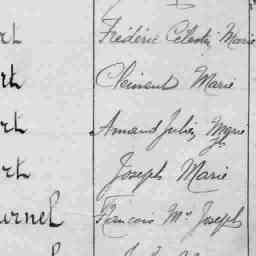 rt Frédéric Célestin Marie
rt Clément Marie
rt Amand Julien
rt Joseph Marie
urnel François Mie Joseph